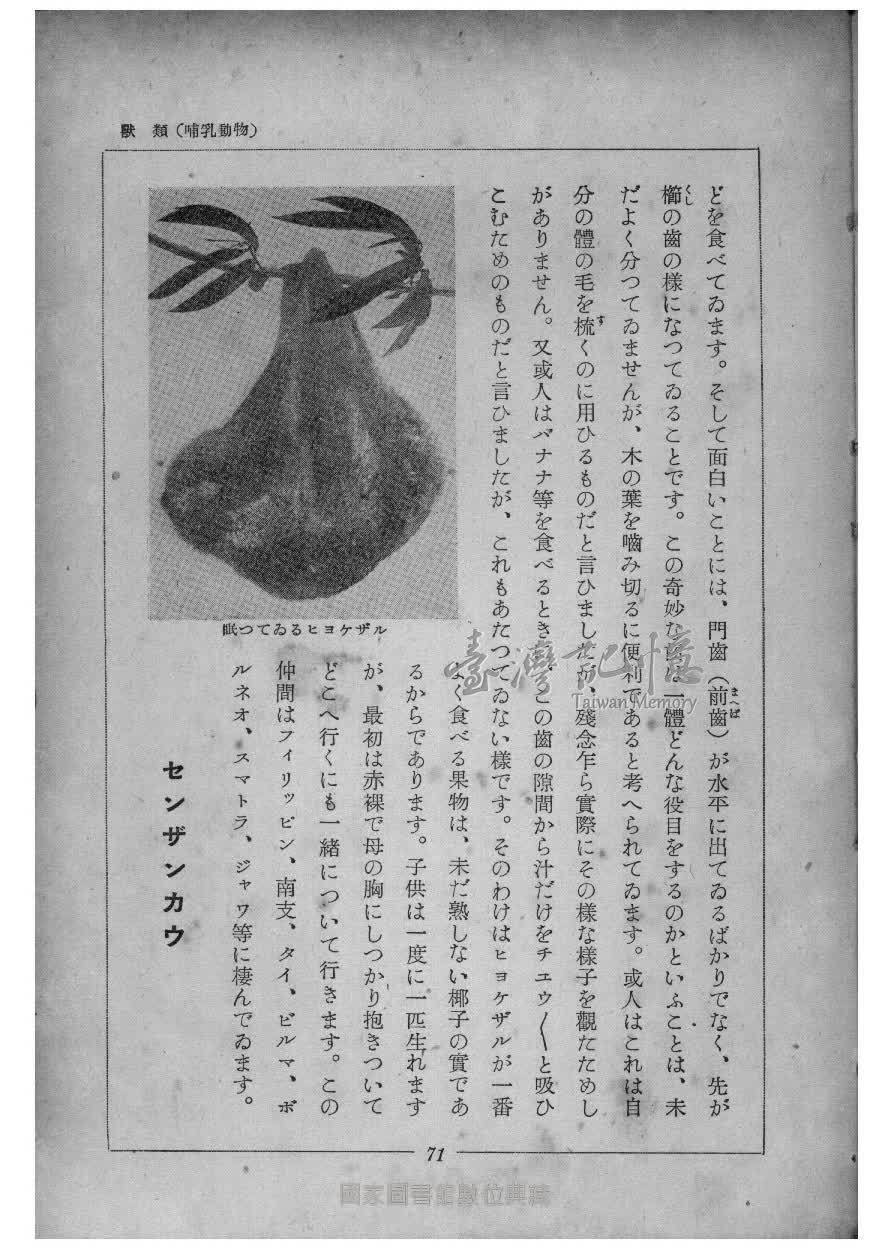 獸類(哺乳動物)
どを食べてゐます。そして面白いことには、門齒(前齒)が水平に出てゐるばかりでなく、先が
櫛の齒の樣になつてゐることです。この奇妙な齒は一體どんな役目をするのかといふことは、未
だよく分つてゐませんが、木の葉を嚙み切るに便利であると考へられてゐます。或人はこれは自
分の體の毛を梳くのに用ひるものだと言ひましたが、殘念乍ら實際にその樣な樣子を觀たためし
がありません。又或人はバナナ等を食べるとき、この齒の隙間から汁だけをチエウ〱と吸ひ
こむためのものだと言ひましたが、これもあたつてゐない樣です。そのわけはヒヨケザルが一番
よく食べる果物は、未だ熟しない椰子の實であ
るからであります。子供は一度に一匹生れます
が、最初は赤裸で母の胸にしつかり抱きついて
どこへ行くにも一緒について行きます。この
仲間はフィリッピン、南支、タイ、ビルマ、ボ
ルネオ、スマトラ、ジャワ等に棲んでゐます。
ルザケヨヒるゐてつ眠
センザンカウ
71
臺灣記憶
Taiwan Memory
國家圖書館數位典藏